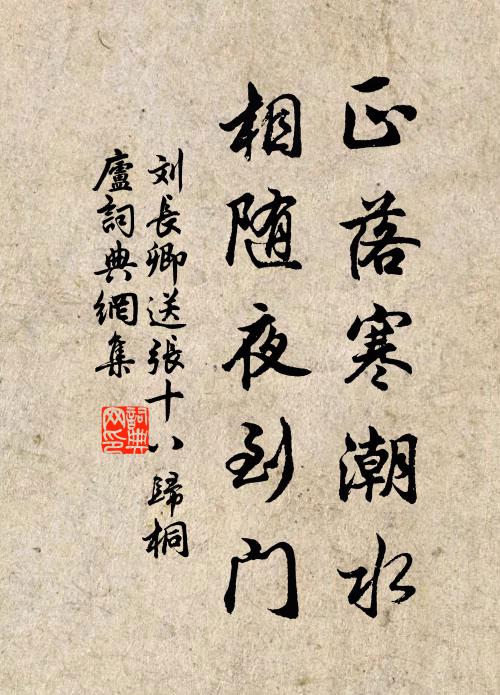 正落寒潮水
相随夜到门
刘長卿送張十八歸桐
廬詞典網集
詞典
网印